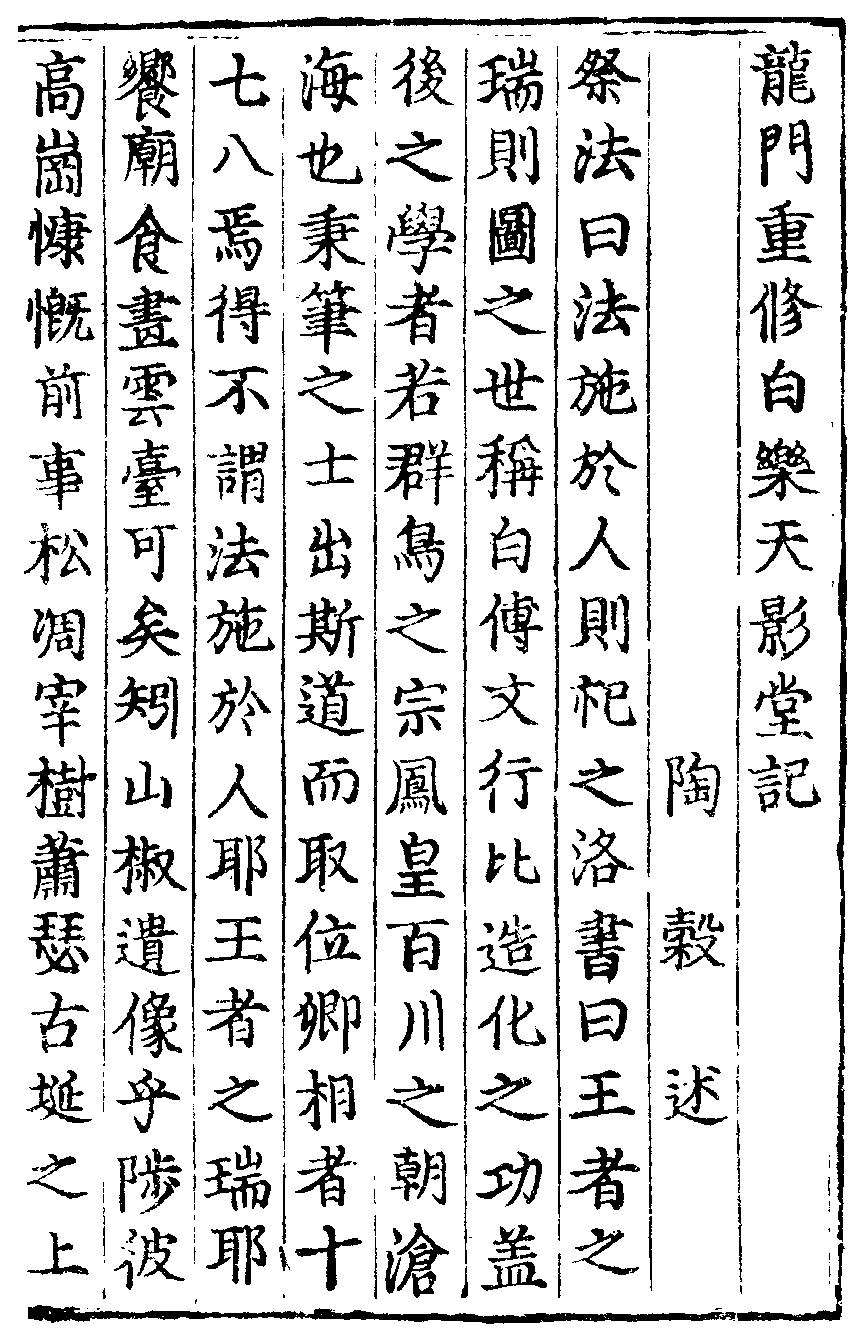 龍門重修白樂天影堂記
陶穀述
祭法曰法施於人則祀之洛書曰王者之
瑞則圖之世稱白傅文行比造化之功盖
後之學者若群鳥之宗鳳皇百川之朝滄
海也秉筆之士出斯道而取位卿相者十
七八焉得不謂法施於人耶王者之瑞耶
饗廟食畫雲臺可矣矧山椒遺像乎陟彼
高崗慷慨前事松凋宰樹蕭瑟古埏之上